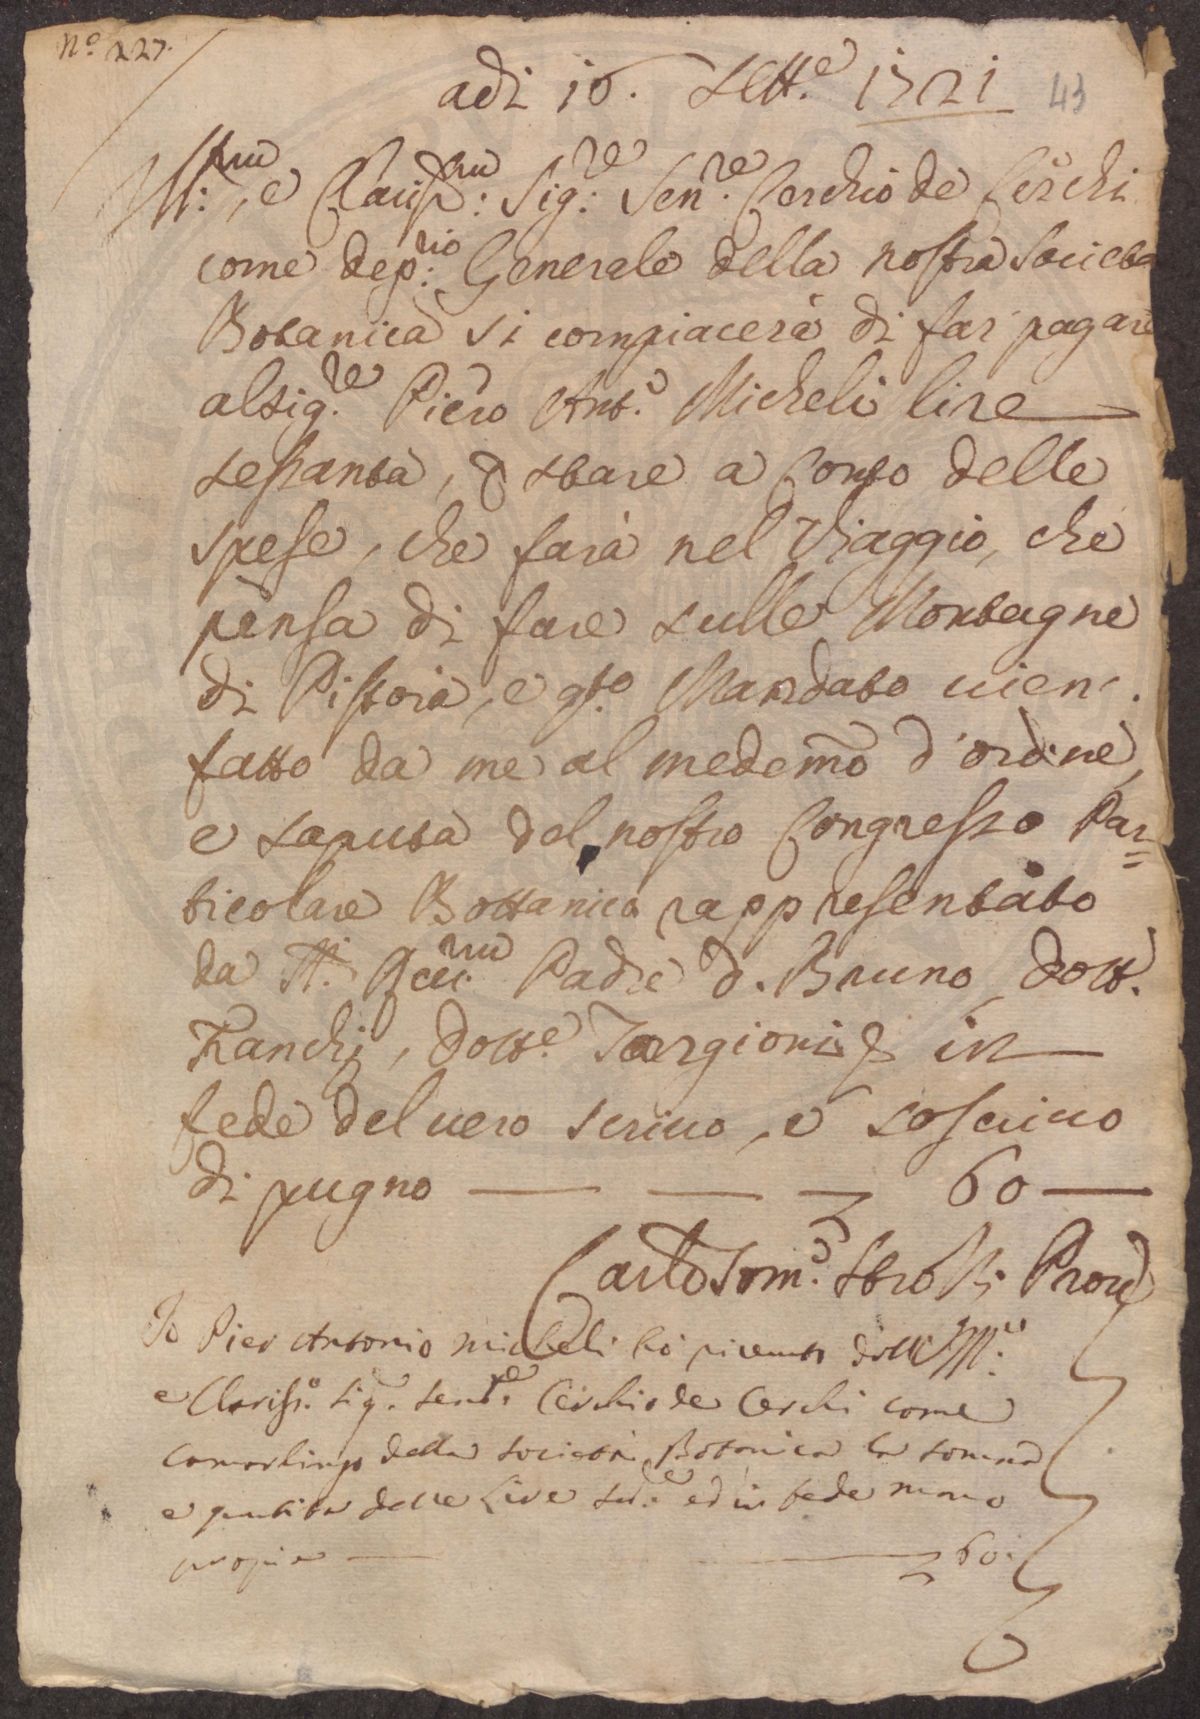 Nº 227.
adi 16. Sett.e 1721
43
Ill.mo, e Clariss.mo Sig.re Sen.re Cerchio de Cerchi
come dep.rio Generale della nostra Societa
Botanica si compiacerà di far pagare
al Sig.re Piero Ant.o Micheli lire
sessanta, p stare a Conto delle
spese, che farà nel Viaggio, che
pensa di fare sulle Montagne
di Pistoia, e qsto Mandato vien
fatto da me al medemo d'ordine,
e saputa del nostro Congresso Par=
ticolare Bottanico rappresentato
da Rev.mo Padre D. Bruno, Dott.
Franchi, Dott.e Targioni & in
fede del vero scrivo, e soscrivo
di pugno — — — 60 —
Carlo Tom.o Strozzi Prov.
Io Pier Antonio Micheli ho ricevuto dall' Ill.o
e Clariss.o Sig. Senre Cerchio de Cerchi come
Camarlingo della Società Botanica la somma
e quantità delle Lire sud.e ed in fede mano
propia — — 60.